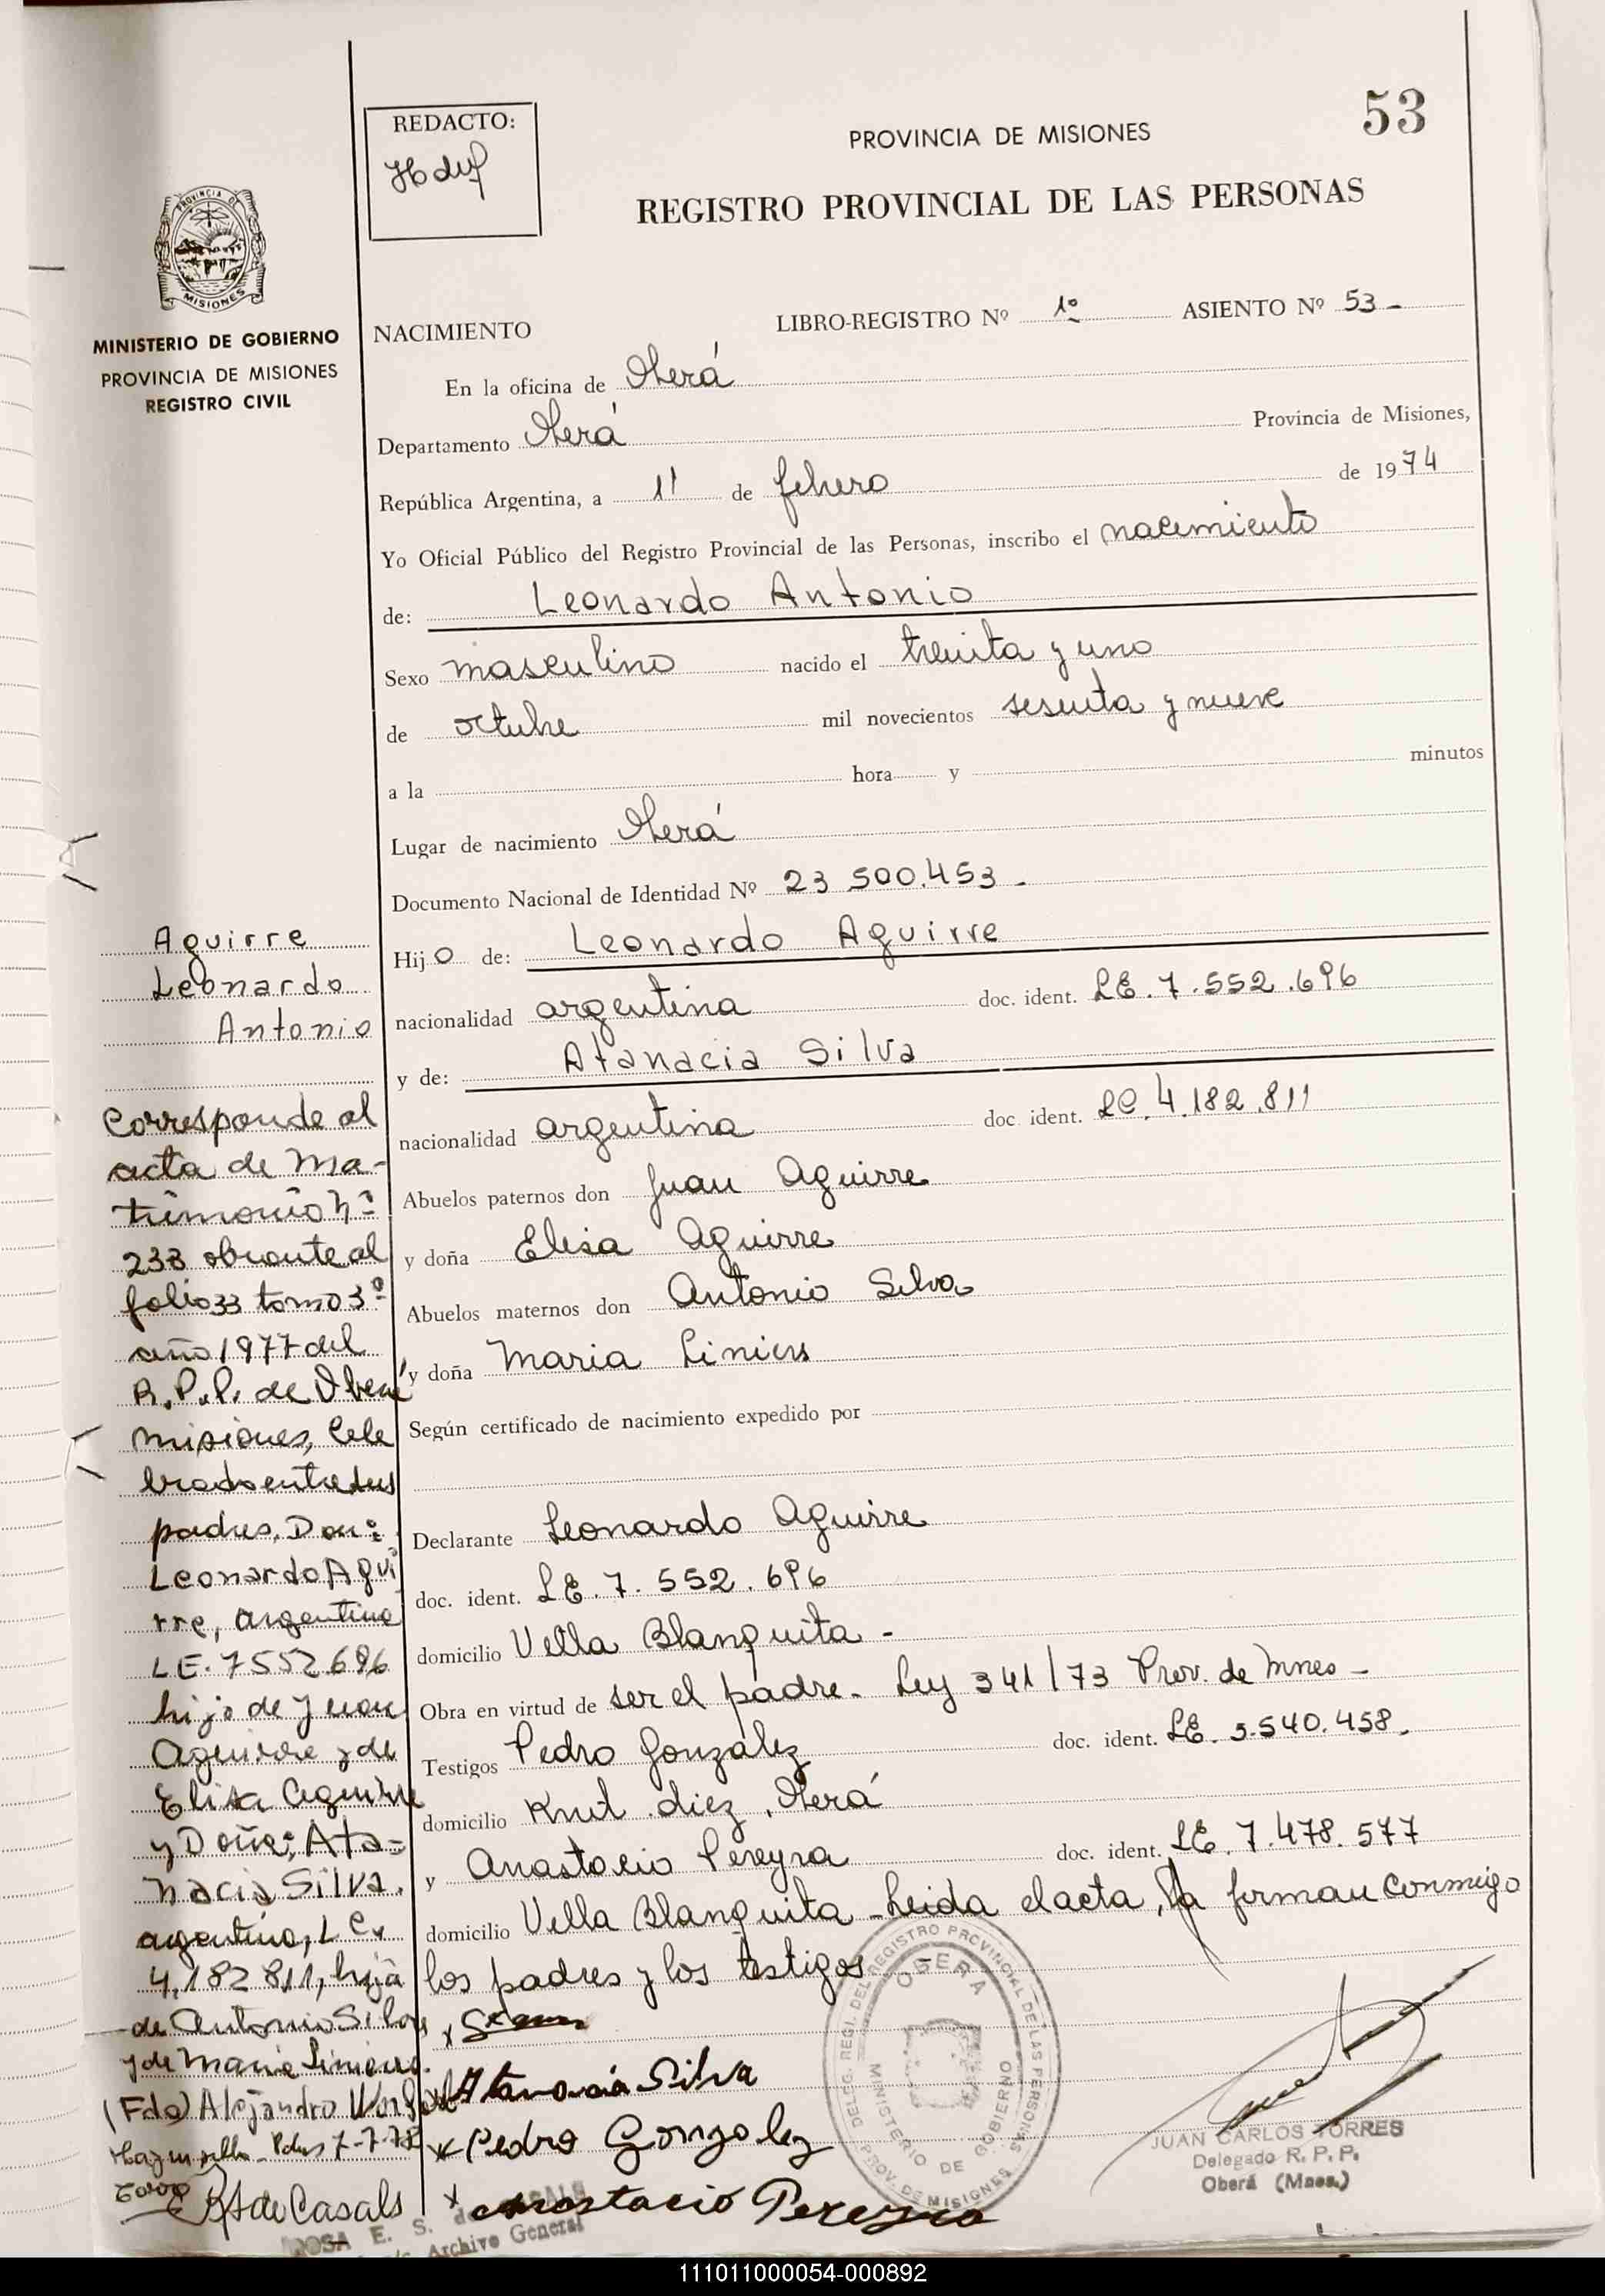 53
REDACTO:
PROVINCIA DE MISIONES
REGISTRO PROVINCIAL DE LAS PERSONAS
PROVINCIA DE
MISIONES
MINISTERIO DE GOBIERNO
PROVINCIA DE MISIONES
REGISTRO CIVIL
NACIMIENTO LIBRO-REGISTRO Nº 1º ASIENTO Nº 53-
En la oficina de Oberá
Departamento Oberá Provincia de Misiones,
República Argentina, a 11 de febrero de 1974
Yo Oficial Público del Registro Provincial de las Personas, inscribo el nacimiento
de: Leonardo Antonio
Sexo masculino nacido el treinta y uno
de octubre mil novecientos sesenta y nueve
a la hora y minutos
Lugar de nacimiento Oberá
Documento Nacional de Identidad Nº 23 500.453-
Hijo de: Leonardo Aguirre
nacionalidad argentina doc. ident. LE. 7.552.696
y de: Atanacia Silva
nacionalidad argentina doc ident. LC. 4.182.811
Abuelos paternos don Juan Aguirre
y doña Elisa Aguirre
Abuelos maternos don Antonio Silva
y doña Maria Liniers
Según certificado de nacimiento expedido por
Declarante Leonardo Aguirre
doc. ident. LE. 7.552.696
domicilio Villa Blanquita-
Obra en virtud de ser el padre- Ley 341/73 Prov. de Mnes-
Testigos Pedro Gonzalez doc. ident. LE. 5.540.458.
domicilio Knut diez, Oberá
y Anastacio Pereyra doc. ident. LE. 7.478.577
domicilio Villa Blanquita - Leida el acta, la firman conmigo
los padres y los testigos
x
Atanacia Silva
x Pedro Gonzalez
x Anastacio Pereyra
Aguirre
Leonardo
Antonio
Corresponde al
acta de Ma-
trimonio nº
233 obrante al
folio 33 tomo 3º
año 1977 del
R.P.P. de Oberá
Misiones, Cele
brado entre sus
padres, Don:
Leonardo Agui
rre, argentino
LE. 7552696
hijo de Juan
Aguirre y de
Elisa Aguirre
y Doña: Ata-
nacia Silva.
argentina, L.C.
4.182 811, hija
de Antonio Silva
y de Maria Liniers.
(Fdo) Alejandro
Hay un sello. Pdas 7-7-78
de Casals
DELEG. REGI. DEL REGISTRO PROVINCIAL DE LAS PERSONAS
OBERA
MINISTERIO DE GOBIERNO
PROV. DE MISIONES
JUAN CARLOS TORRES
Delegado R. P. P.
Oberá (Mnes.)
ROSA E. S. de CASALS
Archivo General
111011000054-000892